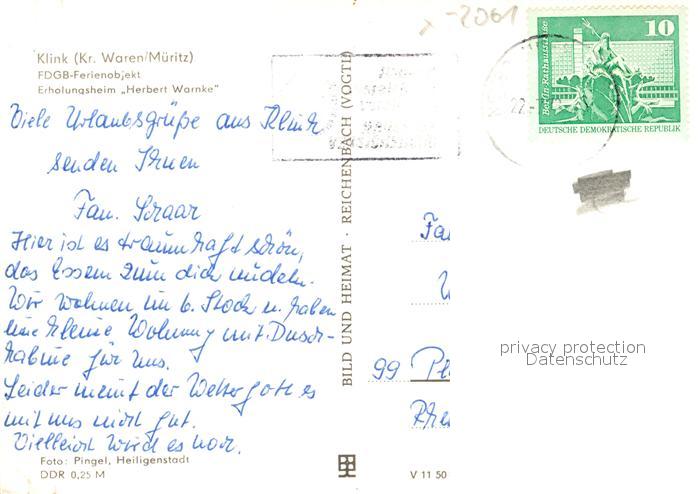 -2061
Klink (Kr. Waren/Müritz)
FDGB-Ferienobjekt
Erholungsheim „Herbert Warnke"
Viele Urlaubsgrüße aus Klink
senden Ihnen
Fam. Scraar
Hier ist es traumhaft schön,
das Essen zum dick nudeln.
Wir wohnen im 6. Stock u. haben
eine kleine Wohnung mit Dusch-
kabine für uns.
Leider meint der Wettergott es
mit uns nicht gut.
Vielleicht wird es noch.
Foto: Pingel, Heiligenstadt
DDR 0,25 M
BILD UND HEIMAT · REICHENBACH (VOGTL)
V 11 50
10
Berlin · Rathausstraße
DEUTSCHE DEMOKRATISCHE REPUBLIK
22.-
Fa
99 Pl
Rhe
privacy protection
Datenschutz